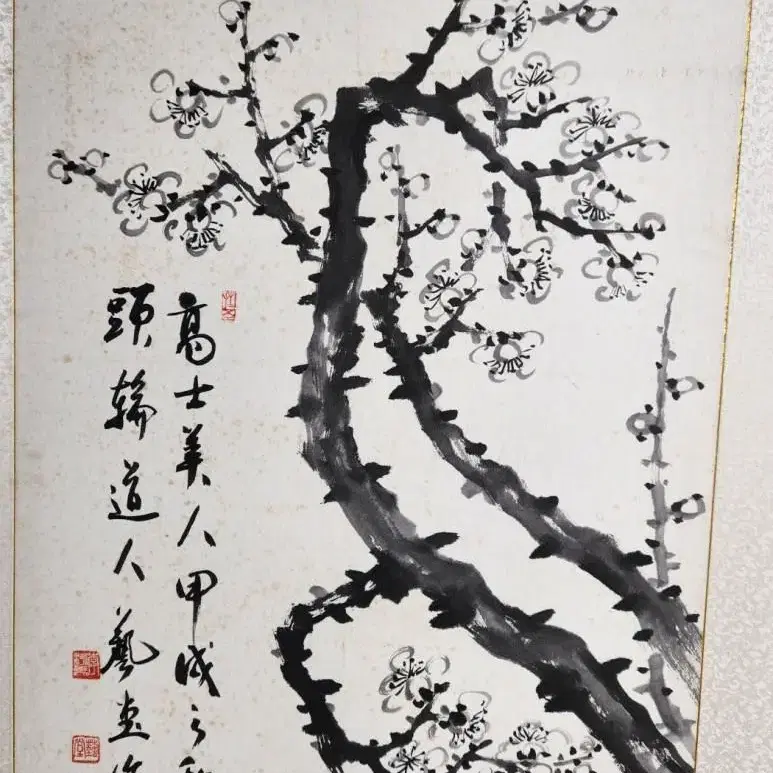 高士美人甲戌之秋
頭輪道人藝